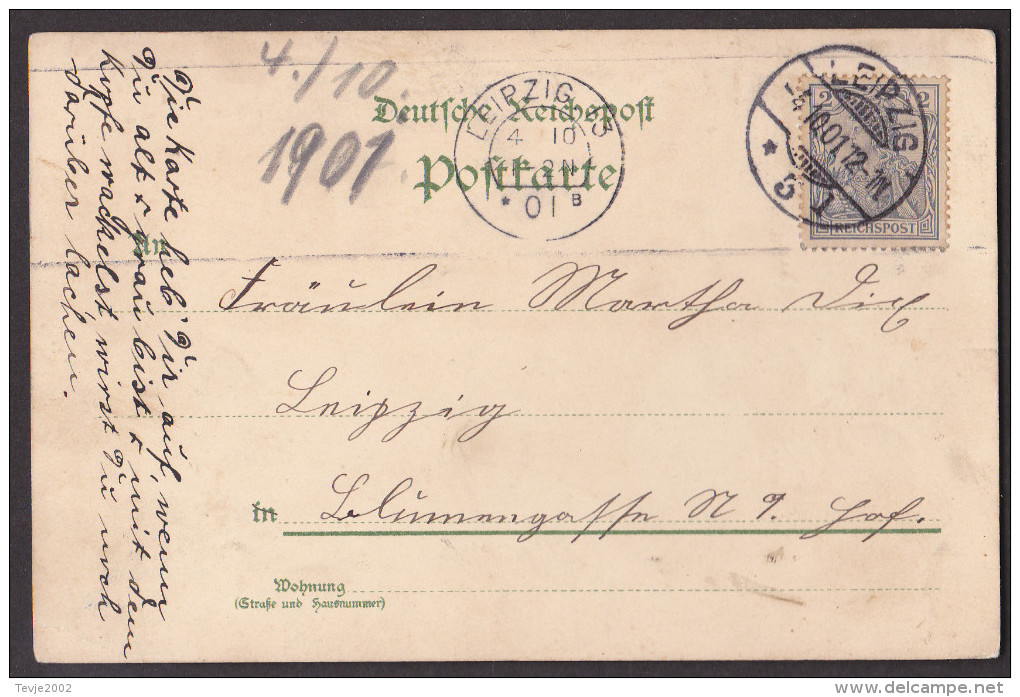 Die Karte heb' Dir auf, wenn
Du alt & grau bist & mit dem
Kopfe wackelst wirst Du noch
darüber lachen.
4./10.
1901.
Deutsche Reichspost
Postkarte
LEIPZIG 13
4 10
1-2N
* 01 B
LEIPZIG
4.10.01.12-1N.
* 5 1
2 2
REICHSPOST
An
Fräulein Martha
Leipzig
in Blumengasse N 9. Hof.
Wohnung
(Straße und Hausnummer)
Tevje2002
delcampe.net